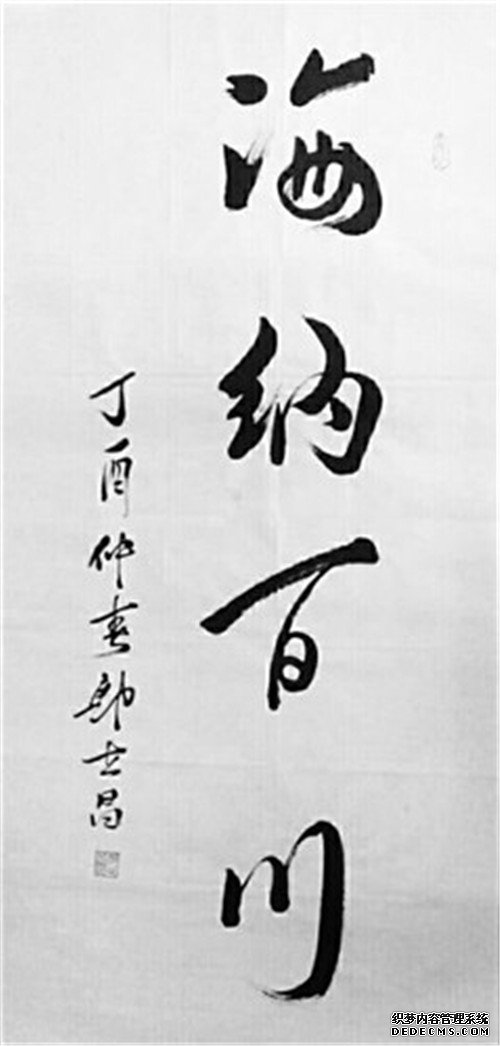 海纳百川
丁酉仲春 昌
织梦内容管理系统
DEDECMS.COM